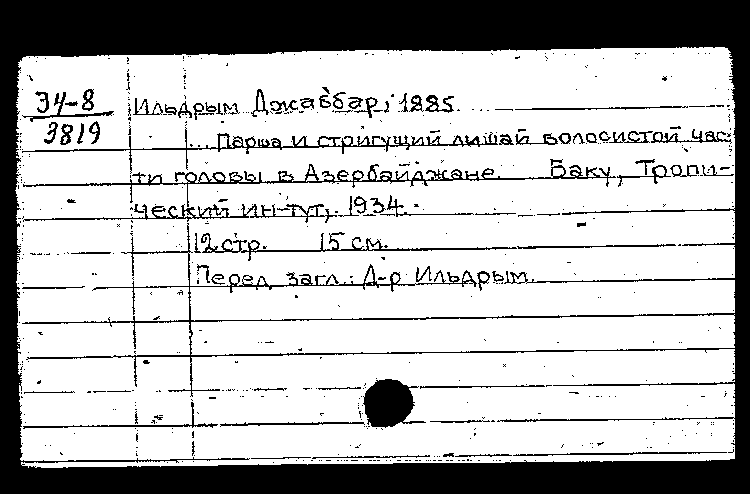 Э4-8
3819
Ильдрым Джаббар, 1885.
... Парша и стригущий лишай волосистой час-
ти головы в Азербайджане. Баку, Тропи-
ческий ин-тут, 1934.
12 стр. 15 см.
Перед загл.: Д-р Ильдрым.